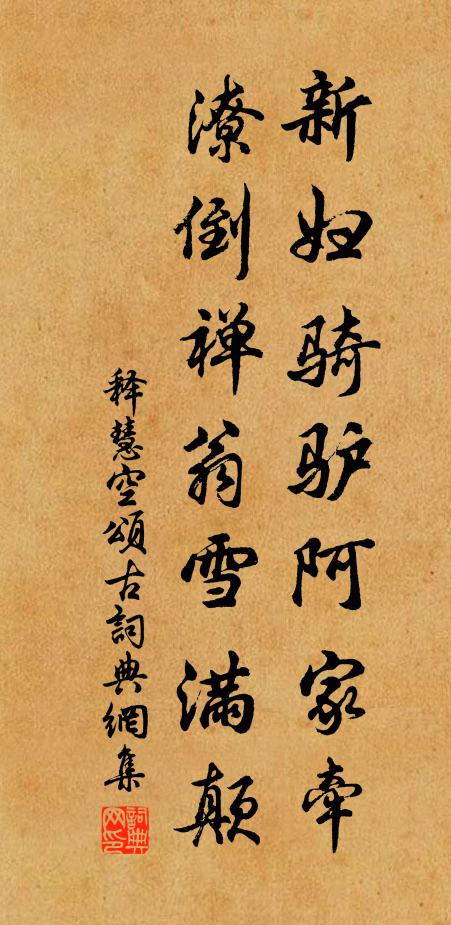 新妇骑驴阿家牵
潦倒禅翁雪满颠
释慧空颂古词典網集
詞典网印